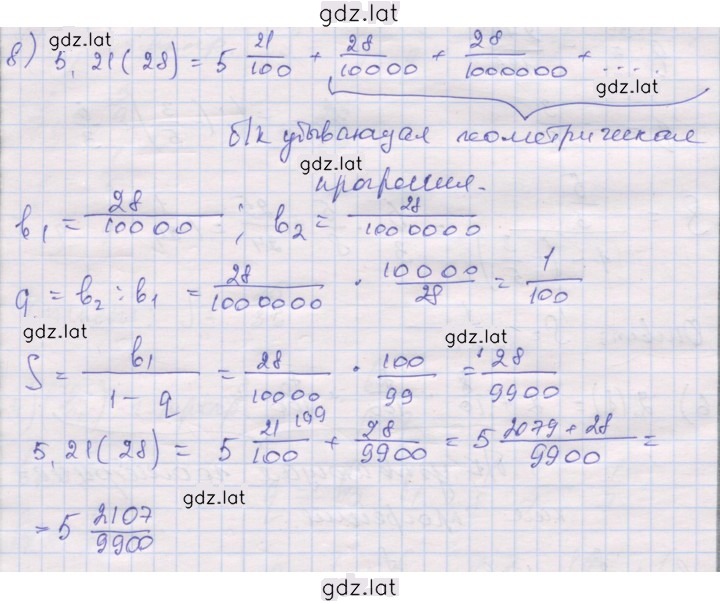 gdz.lat
gdz.lat
8) 5,21(28) = 5 21/100 + 28/10000 + 28/1000000 + ....
gdz.lat
б/к убывающая геометрическая
gdz.lat
прогрессия.
b₁ = 28/10000 ; b₂ = 28/1000000
q = b₂ : b₁ = 28/1000000 · 10000/28 = 1/100
gdz.lat
gdz.lat
S = b₁/(1 - q) = 28/10000 · 100/99 = 28/9900
5,21(28) = 5 21/100 \99 + 28/9900 = 5 (2079 + 28)/9900 =
gdz.lat
= 5 2107/9900
gdz.lat